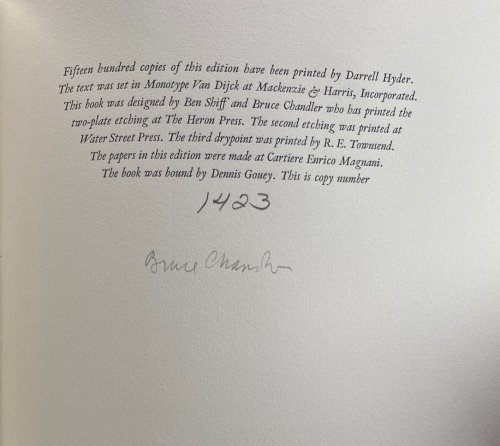 Fifteen hundred copies of this edition have been printed by Darrell Hyder.
The text was set in Monotype Van Dijck at Mackenzie & Harris, Incorporated.
This book was designed by Ben Shiff and Bruce Chandler who has printed the
two-plate etching at The Heron Press. The second etching was printed at
Water Street Press. The third drypoint was printed by R. E. Townsend.
The papers in this edition were made at Cartiere Enrico Magnani.
The book was bound by Dennis Gouey. This is copy number
1423
Bruce Chandler